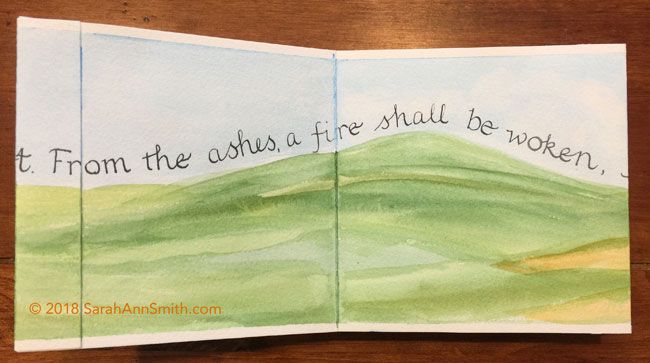 t. From the ashes, a fire shall be woken,
© 2018 SarahAnnSmith.com